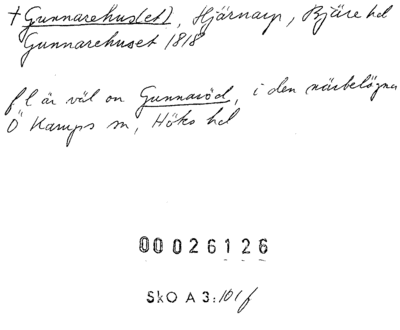 † Gunnarehus(et), Hjärnarp, Bjäre hd
Gunnarehuset 1818
f l är väl on Gunnaröd, i den närbelägna
Ö Karups sn, Höks hd
00026126
SkO A 3:101f